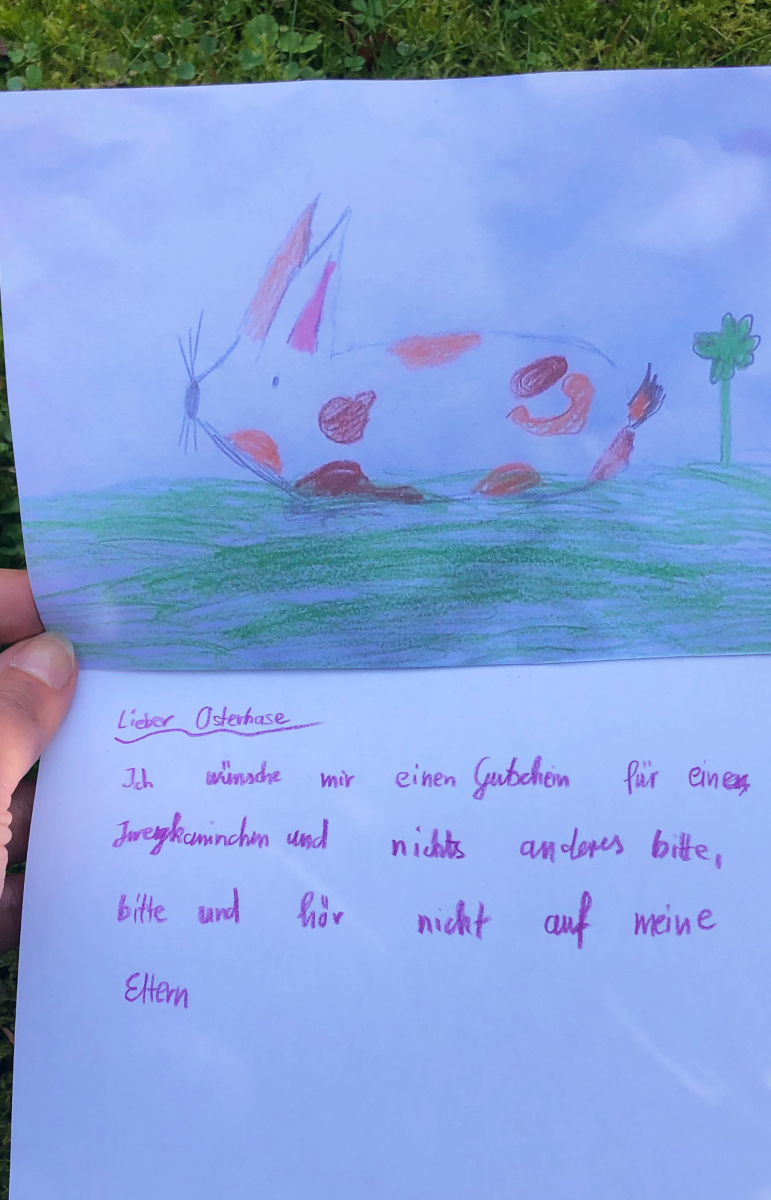 Lieber Osterhase
Ich wünsche mir einen Gutschein für einen
Zwergkaninchen und nichts anderes bitte,
bitte und hör nicht auf meine
Eltern